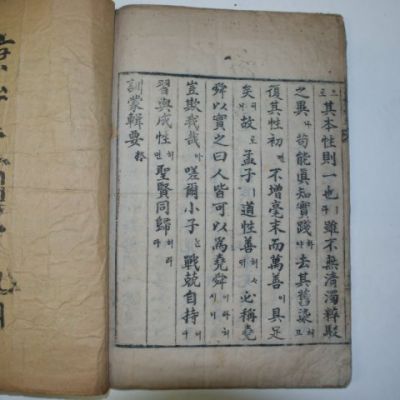 其本性則一也ㅣ라 雖不無清濁粹駁
之異나 苟能眞知實踐 去其舊染
復其性初면 不增毫末而萬善이 具足
矣 故로 孟子ㅣ 道性善 必稱堯
舜以實之曰人皆可以爲堯舜이라
豈欺我哉아 嗟爾小子 戰兢自持
習與成性 聖賢同歸
訓蒙輯要 終